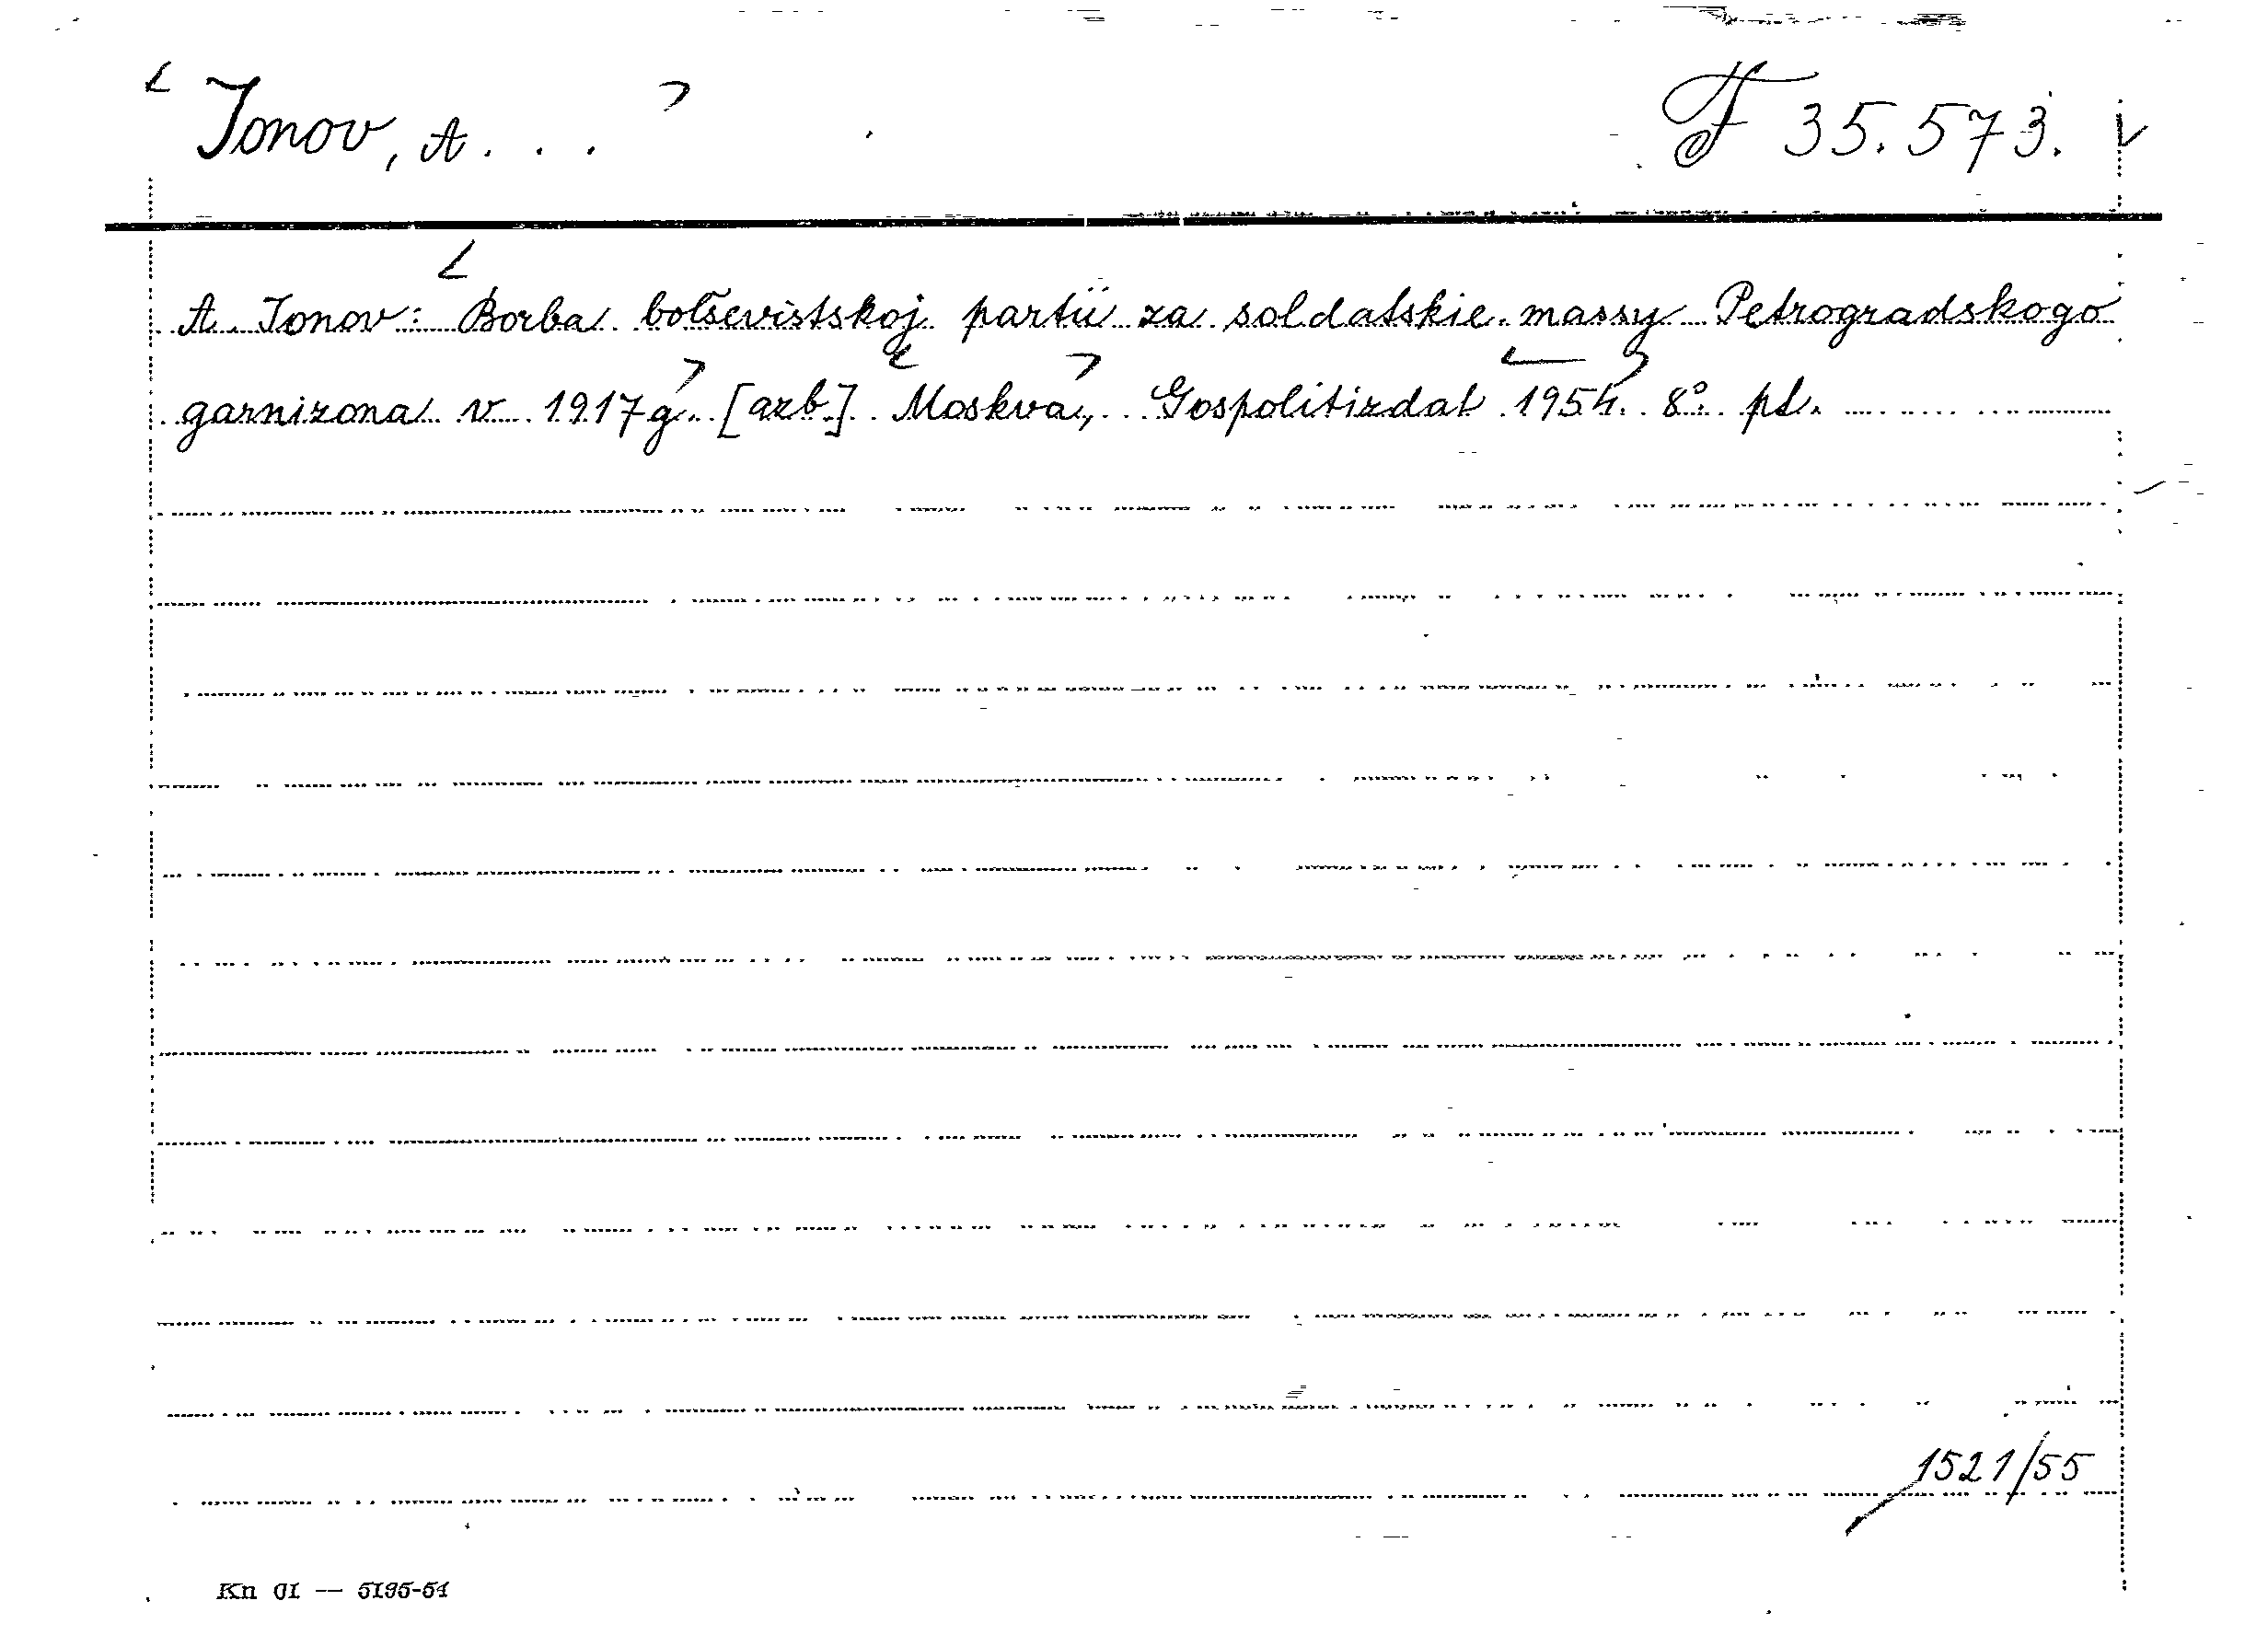 Jonov, A. . .
F 35.573.
A. Jonov: Borba bolševistskoj partii za soldatskie massy Petrogradskogo
garnizona v 1917 g. [azb.] Moskva, Gospolitizdat 1954. 8°. pl.
1521/55
Kn 01 — 5195-54